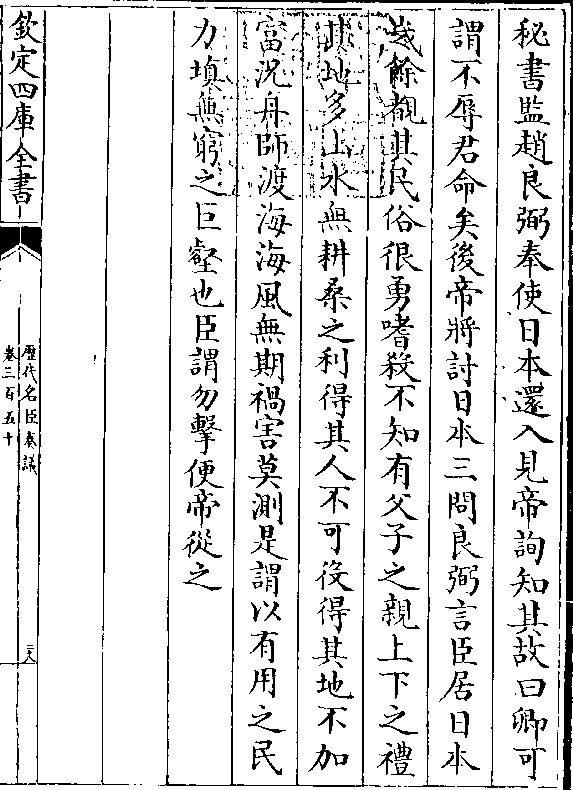 秘書監趙良弼奉使日本還入見帝詢知其故曰卿可
謂不辱君命矣後帝將討日本三問良弼言臣居日本
歲餘覩其民俗很勇嗜殺不知有父子之親上下之禮
其地多山水無耕桑之利得其人不可役得其地不加
富況舟師渡海海風無期禍害莫測是謂以有用之民
力填無窮之巨壑也臣謂勿擊便帝從之
欽定四庫全書
歷代名臣奏議
卷三百五十